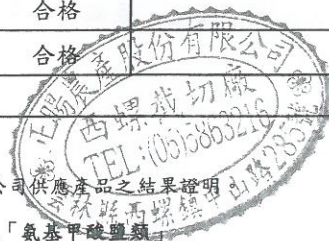 合格
合格
正暘農產股份有限公司
西螺截切廠
TEL:(05)5863216
雲林縣西螺鎮中山路285號
公司供應產品之結果證明。
「氨基甲酸鹽類」